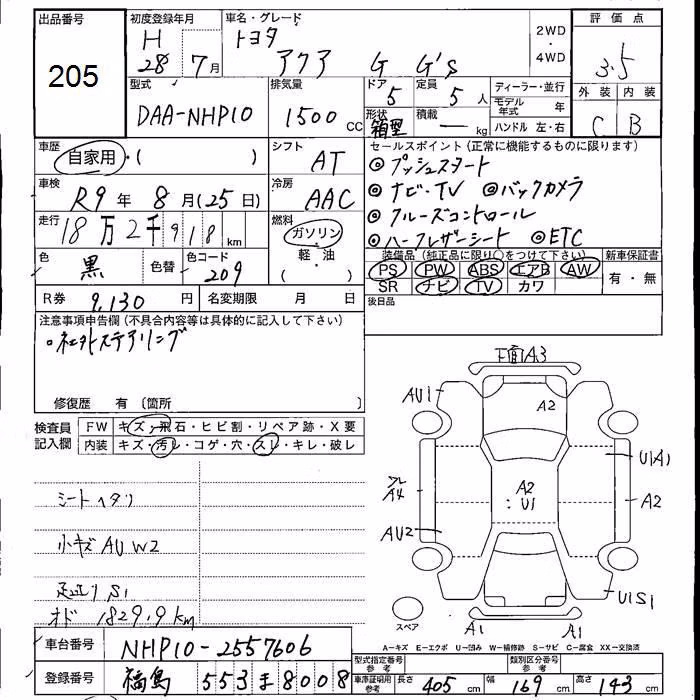 出品番号
205
初度登録年月
H
28 7月
車名・グレード
トヨタ
アクア G G's
2WD
・
4WD
評価点
3.5
外装 内装
C B
型式
DAA-NHP10
排気量
1500 CC
ドア
5
定員
5 人
形状
箱型
積載
— kg
ディーラー・並行
モデル年式 年
ハンドル 左・右
車歴
自家用・( )
シフト
AT
車検
R9年 8月(25日)
冷房
AAC
走行
18万2千918km
燃料
ガソリン
(軽・油)
色
黒
色替
色コード
209
R券 9,130 円
名変期限 月 日
セールスポイント(正常に機能するものに限ります)
◎プッシュスタート
◎ナビ・TV ◎バックカメラ
◎クルーズコントロール
◎ハーフレザーシート ◎ETC
装備品(純正品に限り○をつけて下さい)
PS PW ABS エアB AW
SR ナビ TV カワ
新車保証書
有・無
後日品
注意事項申告欄(不具合内容等は具体的に記入して下さい)
修復歴 有〔箇所 〕
検査員
記入欄
FW キズ・飛石・ヒビ割・リペア跡・X要
内装 キズ・汚レ・コゲ・穴・スレ・キレ・破レ
シートヘタリ
小キズAUW2
オド 182919km
車台番号
NHP10-2557606
登録番号
福島 553 ま 8008
下面A3
AU1
A2
U1A1
A4
A2
U1
A2
AU2
U1S1
スペア
A1
A1
A−キズ E−エクボ U−凹み W−補修跡 S−サビ C−腐食 XX−交換済
型式指定番号
参考
類別区分番号
参考
車庫証明用
参考
長さ 405 cm 幅 169 cm 高さ 143 cm